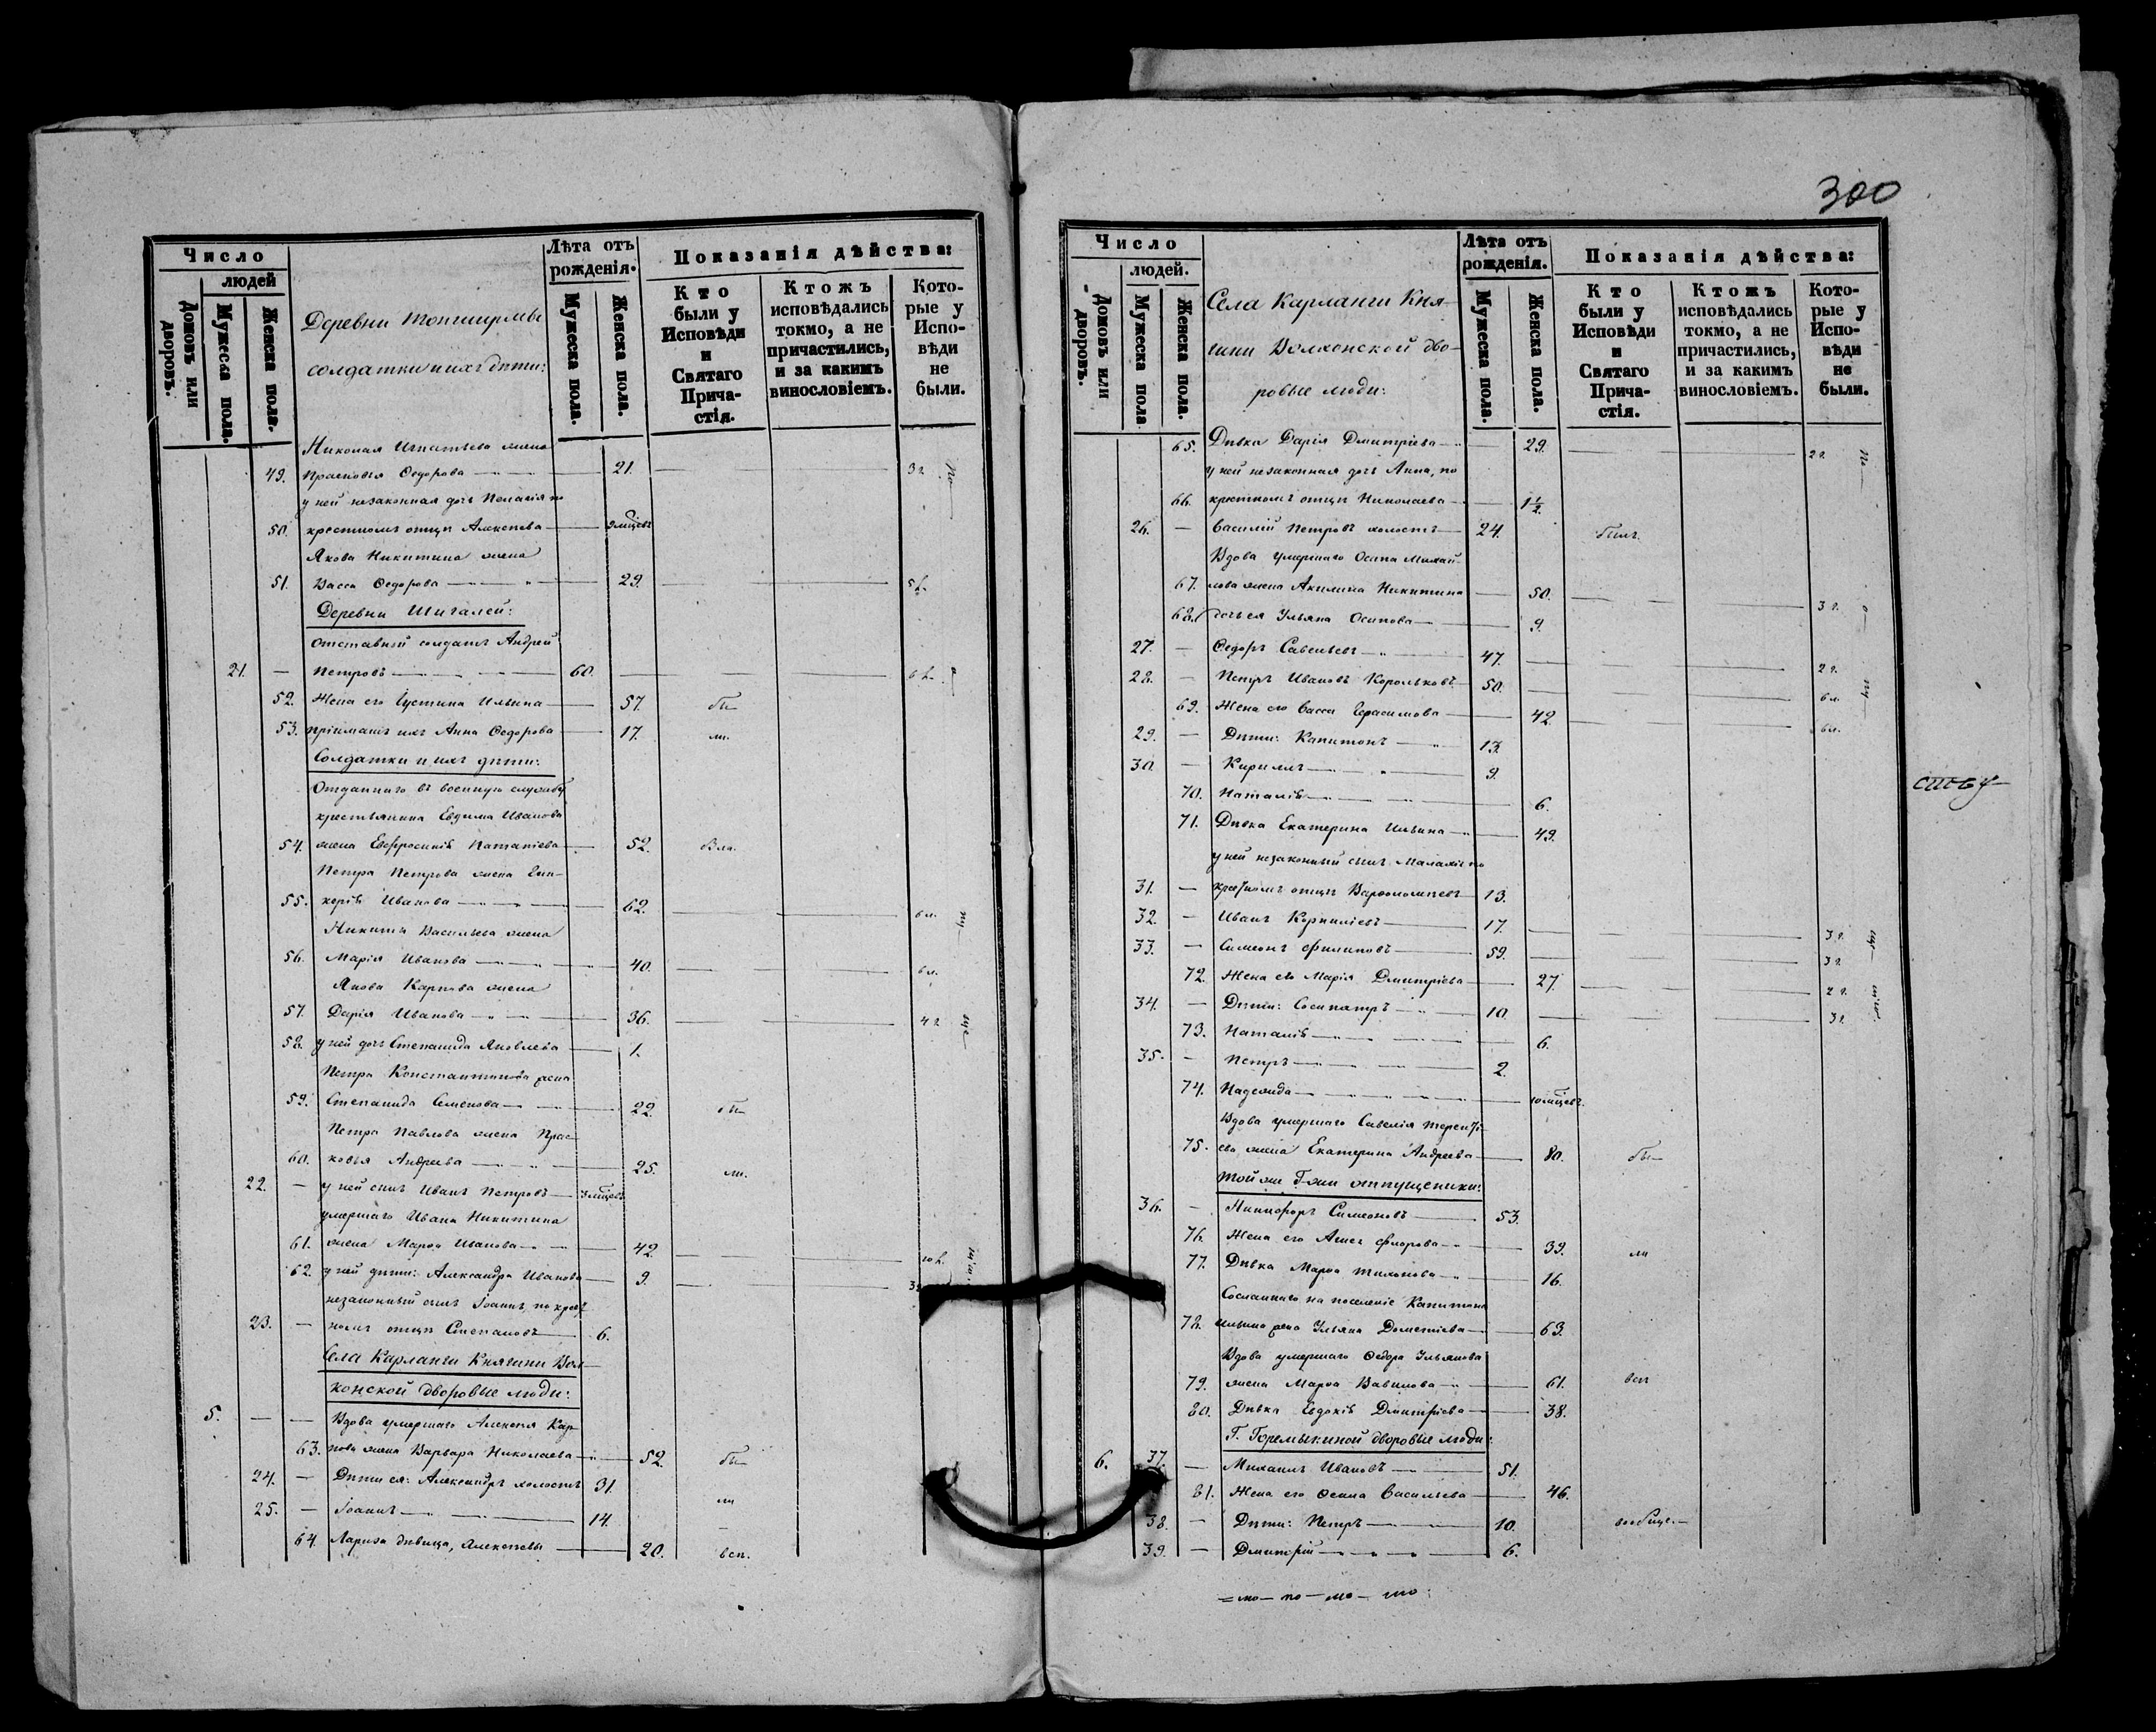 300
Число
людей
Домовъ или дворовъ.
Мужеска пола.
Женска пола.
Деревни Топширмы
солдатки и ихъ дѣти:
Лѣта отъ рожденія.
Мужеска пола.
Женска пола.
Показанія дѣйства:
Кто были у Исповѣди и Святаго Прича-стія.
Ктожъ исповѣдались токмо, а не причастились, и за какимъ винословіемъ.
Кото-рые у Испо-вѣди не были.
Николая Игнатьева жена
49. Прасковья Ѳедорова 21. 3 г.
у ней незаконная дочь Пелагія по
50. крестномъ отцѣ Алексѣева 9 мцевъ
Якова Никитина жена
51. Васса Ѳедорова 29.
Деревни Шигалей:
Отставный солдатъ Андрей
21. — Петровъ 60.
52. Жена его Іустина Ильина 57. бы
53. пріимашъ ихъ Анна Ѳедорова 17. ли.
Солдатки и ихъ дѣти:
Отданнаго въ военную службу
крестьянина Евдима Иванова
54. жена Евфросинія Потапіева 52.
Петра Петрова жена Гли-
55. керія Иванова 62. 6 л.
Никиты Васильева жена
56. Марія Иванова 40. 6 л.
Якова Карпова жена
57. Дарія Иванова 36. 4 г.
58. у ней дочь Степанида Яковлева 1.
Петра Константинова жена
59. Степанида Семенова 22. бы
Петра Павлова жена Прас-
60. ковья Андреева 25. ли.
22. — у ней сынъ Иванъ Петровъ 3 мцевъ
умершаго Ивана Никитина
61. жена Марѳа Иванова 42.
62. у ней дѣти: Александра Иванова 9.
незаконный сынъ Іоаннъ, по крест
23. — номъ отцѣ Степановъ 6.
Села Карланги Княгини Вол-
конской дворовые люди:
5. — — Вдова умершаго Алексѣя Кар-
63. пова жена Варвара Николаева 52. бы
24. — Дѣти ея: Александръ холостъ 31. ли
25. — Іоаннъ 14.
64. Лариса дѣвица, Алексѣевы 20. всп.
Число
людей.
Домовъ или дворовъ.
Мужеска пола
Женска пола.
Села Карланги Кня-
гини Волконской дво-
ровые люди:
Лѣта отъ рожденія.
Мужеска пола.
Женска пола.
Показанія дѣйства:
Кто были у Исповѣди и Святаго Прича-стія.
Ктожъ исповѣдались токмо, а не причастились, и за какимъ винословіемъ.
Кото-рые у Испо-вѣди не были.
65. Дѣвка Дарія Дмитріева 29. 2 г.
у ней незаконная дочь Анна, по
66. крестномъ отцѣ Николаева 1½.
26. — Василій Петровъ холостъ 24. былъ
Вдова умершаго Осипа Михай-
67. лова жена Акилина Никитина 50. 3 г.
68. дочь ея Ульяна Осипова 9.
27. — Ѳедоръ Савельевъ 47. 2 г.
28. — Петръ Ивановъ Корольковъ 50. 6 л.
69. Жена его Васса Герасимова 42. 6 л.
29. — Дѣти: Капитонъ 13.
30. — Кириллъ 9.
70. Наталія 6.
71. Дѣвка Екатерина Ильина 49.
у ней незаконный сынъ Малахія по
31. — крестномъ отцѣ Варѳоломѣевъ 13.
32. — Иванъ Корниліевъ 17. 3 г.
33. — Симеонъ Филиповъ 59. 3 г.
72. Жена его Марія Дмитріева 27. 2 г.
34. — Дѣти: Сосипатръ 10. 3 г.
73. Наталія 6.
35. — Петръ 2.
74. Надежда 10 мцевъ
Вдова умершаго Савелія Терентi-
75. ева жена Екатерина Андреева 80. бы
Той же Г-жи отпущеники:
36. — Никифоръ Симеоновъ 53.
76. Жена его Флорова 39. ли
77. Дѣвка Марѳа Тихонова 16.
Сосланнаго на поселеніе Капитона
78. Ильина жена Ульяна Дометіева 63.
Вдова умершаго Ѳедора Ульянова
79. жена Марѳа Вавилова 61. всп
80. Дѣвка Евдокія Дмитріева 38.
Г. Горемыкиной дворовые люди:
6. 37. — Михаилъ Ивановъ 51.
81. Жена его Ѳекла Васильева 46.
38. — Дѣти: Петръ 10. вообще
39. — Дмитрій 6.